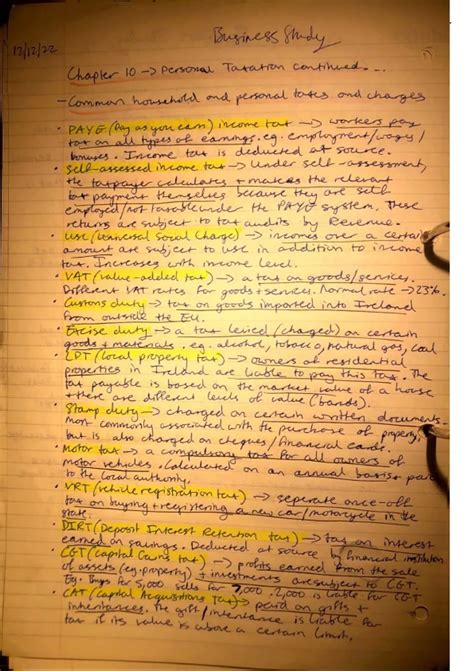 Business Study
12/12/22
Chapter 10 → Personal Taxation continued...
- Common household and personal taxes and charges
• PAYE (Pay as you earn) income tax → workers pay
tax on all types of earnings. eg. employment/wages/
bonuses. Income tax is deducted at source.
• Self-assessed income tax → Under self-assessment,
the taxpayer calculates + makes the relevant
tax payment themselves because they are self
employed/not taxable under the PAYE system. These
returns are subject to tax audits by Revenue.
• USC (Universal Social Charge) → incomes over a certain
amount are subject to USC in addition to income
tax. Increases with income level.
• VAT (value-added tax) → a tax on goods/services.
Different VAT rates for goods + services. Normal rate → 23%.
• Customs duty → tax on goods imported into Ireland
from outside the EU.
• Excise duty → a tax levied (charged) on certain
goods + materials. eg. alcohol, tobacco, natural gas, coal
• LPT (local property tax) → owners of residential
properties in Ireland are liable to pay this tax. The
tax payable is based on the market value of a house
+ there are different levels of value (bands).
• Stamp duty → charged on certain written documents.
most commonly associated with the purchase of property,
but is also charged on cheques/financial cards.
• Motor tax → a compulsory tax for all owners of
motor vehicles. Calculated on an annual basis + paid
to the local authority.
• VRT (vehicle registration tax) → seperate once-off
tax on buying + registering a new car/motorcycle in the
state.
• DIRT (Deposit Interest Retention tax) → tax on interest
earned on savings. Deducted at source by financial institution
• CGT (capital Gains tax) → profits earned from the sale
of assets (eg. property) + investments are subject to CGT.
Eg. Buys for 5,000 sells for 7,000. 2,000 is liable for CGT
• CAT (Capital Acquisitions Tax) → paid on gifts +
inheritances. The gift/inheritance is liable for
tax if its value is above a certain limit.